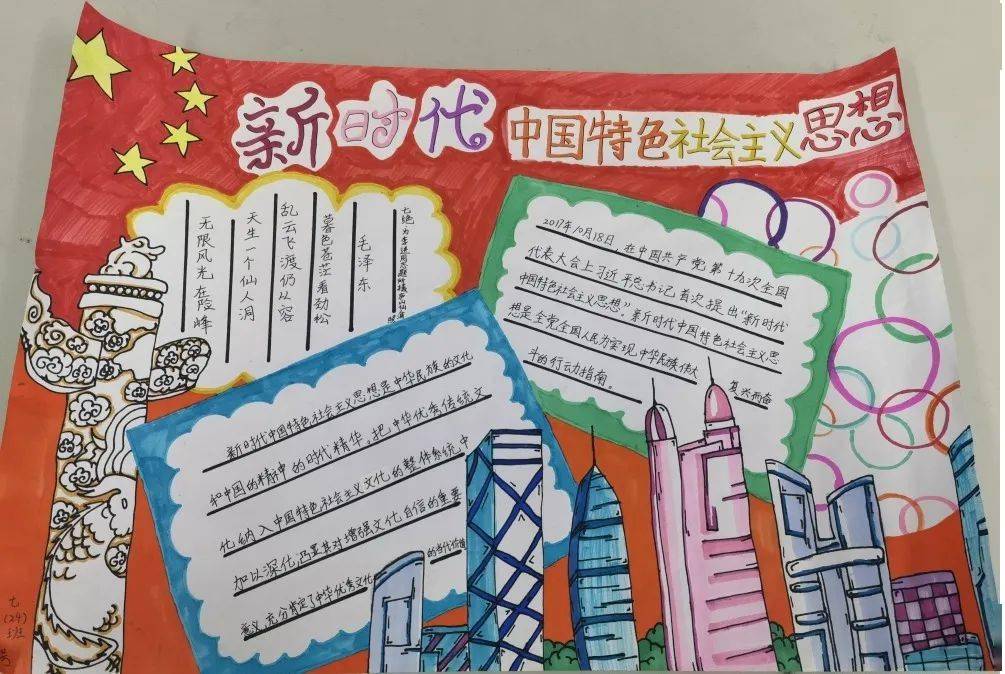 新时代 中国特色社会主义思想
七绝·为李进同志题所摄庐山仙人洞照
毛泽东
暮色苍茫看劲松
乱云飞渡仍从容
天生一个仙人洞
无限风光在险峰
2017年10月18日，在中国共产党第十九次全国
代表大会上习近平总书记首次提出“新时代
中国特色社会主义思想”。新时代中国特色社会主义思
想是全党全国人民为实现中华民族伟大
复兴而奋
斗的行动指南。
新时代中国特色社会主义思想是中华民族的文化
和中国的精神的时代精华。把中华优秀传统文
化纳入中国特色社会主义文化的整体系统中
加以深化，凸显其对增强文化自信的重要
意义，充分肯定了中华优秀文化
的当代价值
七
(24)
班
号